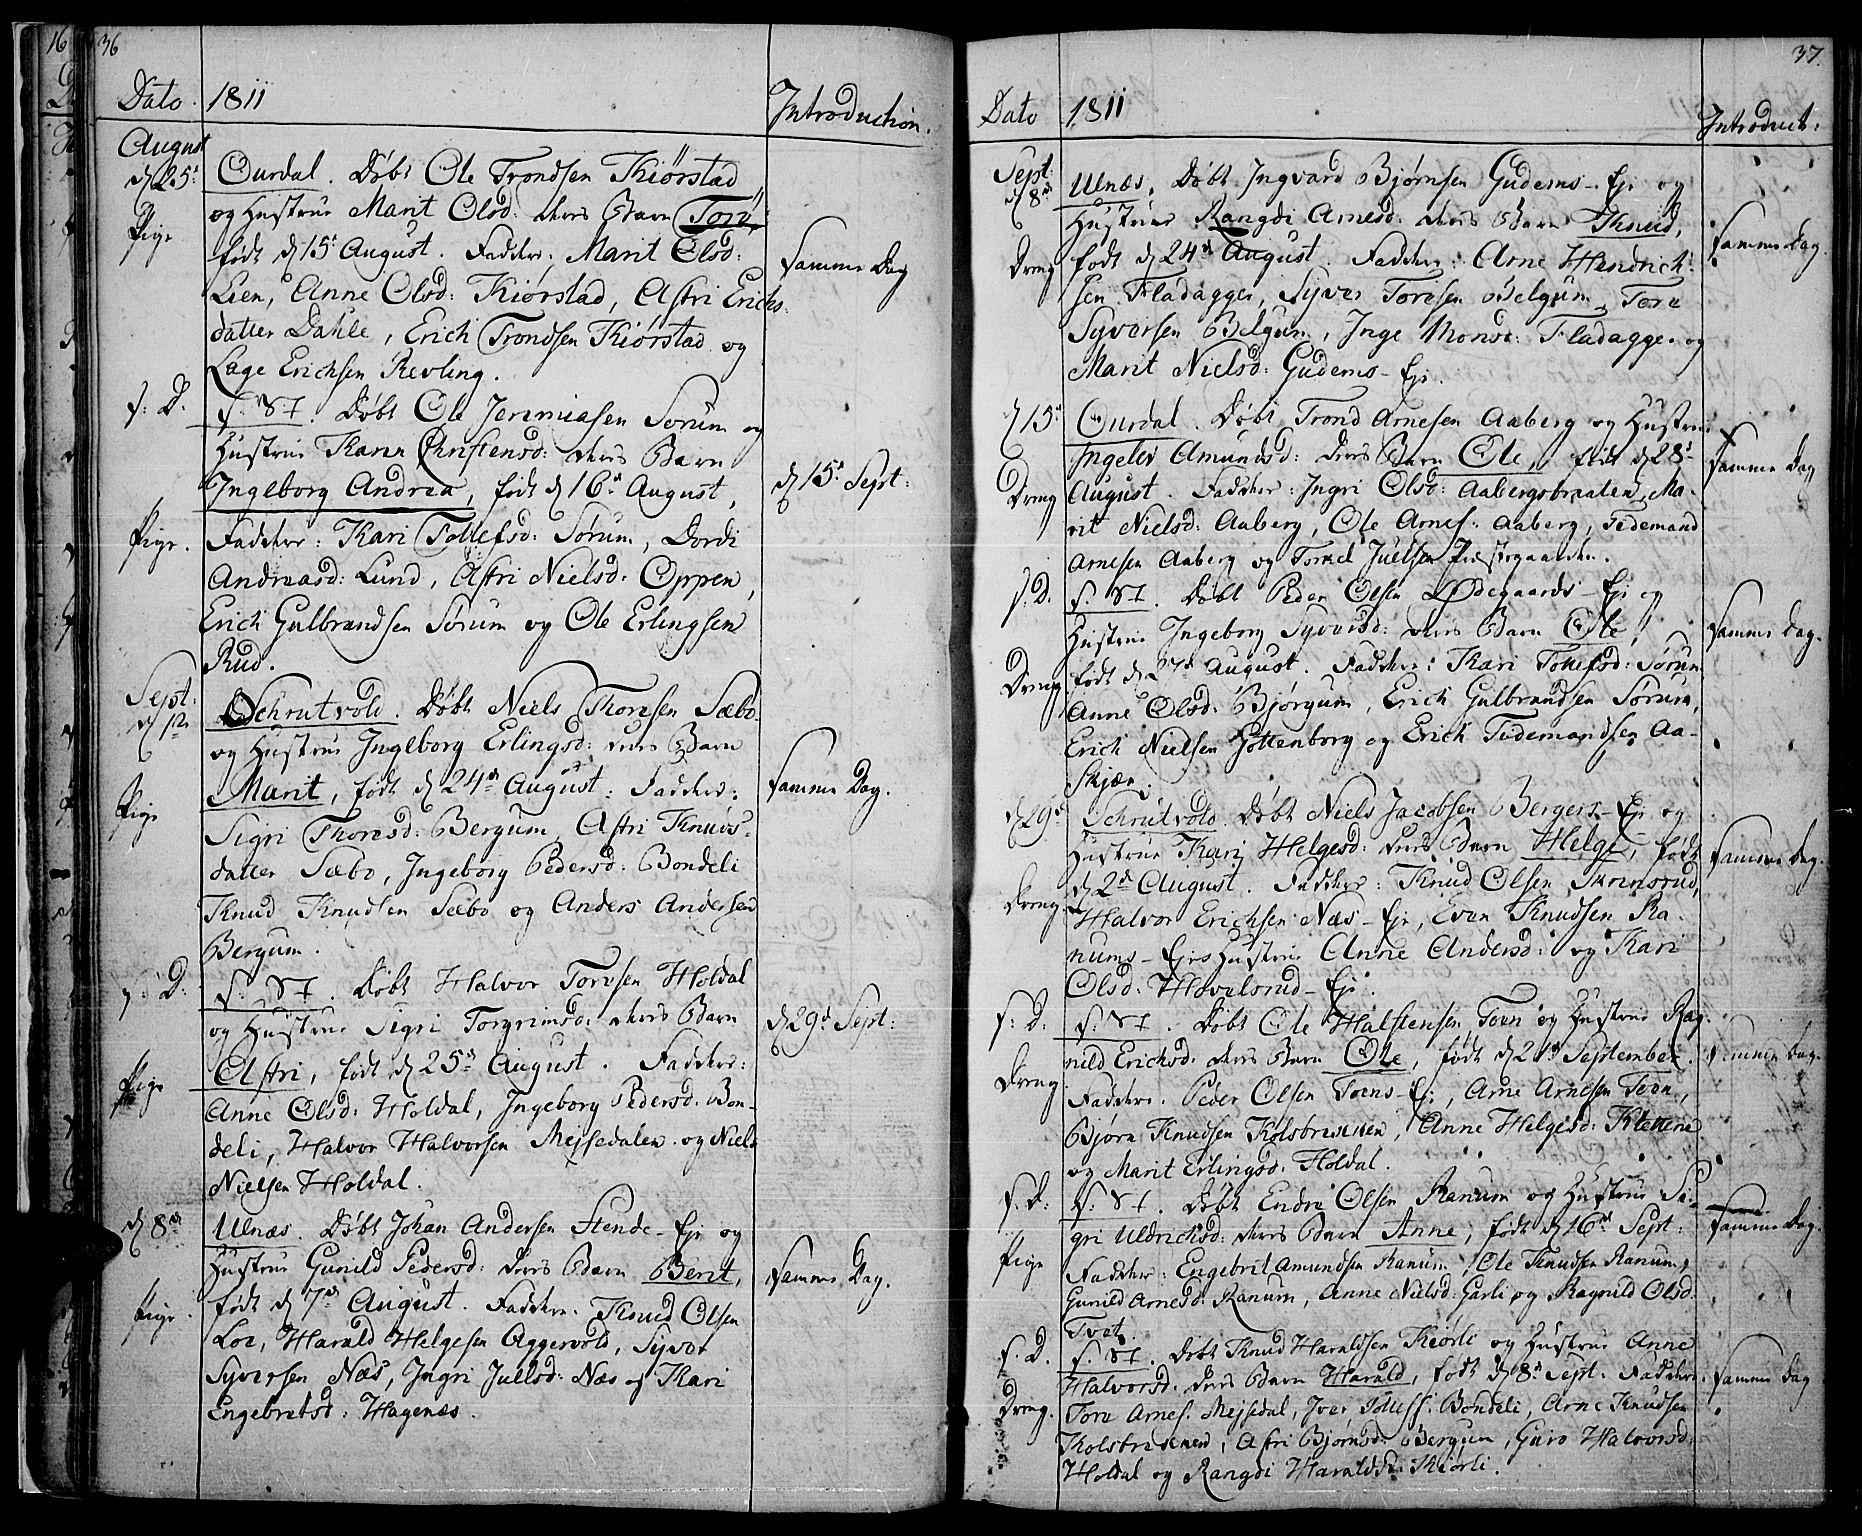 36
Dato. 1811 Introduction.
August
d 25d Ourdal. Døbt Ole Trondsen Kiørstad
og Hustrue Marit Olsd: deres Barn Tore,
Pige
født d 15d August. Faddere, Marit Olsd:
Samme Dag
Lien, Anne Olsd: Kiørstad, Astri Erichs-
datter Dahle, Erich Trondsen Kiørstad og
Lage Erichsen Revling.
s. D. s. St. Døbt Ole Jeremiasen Sørum og
Hustrue Karen Christensd: deres Barn
Ingeborg Andrea, født d 16d August,
d 15d Sept:
Pige. Faddere: Kari Tollefsd: Sørum, Dordi
Andreasd: Lund, Astri Nielsd: Oppen,
Erich Gulbrandsen Sørum og Ole Erlingsen
Rud.
Sept:
d 1ste Schrutvold. Døbt Niels Thoresen Sæbo
og Hustrue Ingeborg Erlingsd: deres Barn
Pige Marit, født d 24d August: Faddere:
Samme Dag.
Sigri Thoresd: Bergum, Astri Knuds-
datter Sæbo, Ingeborg Pedersd: Bondeli
Knud Knudsen Sæbo og Anders Andersen
Bergum.
s: D: s. St. Døbt Halvor Toresen Holdal
og Hustrue Sigri Torgrimsd: deres Barn
d 29d Sept:
Pige Astri, født d 25d August. Faddere:
Anne Olsd: Holdal, Ingeborg Pedersd: Bon-
deli, Halvor Halvorsen Mejsedalen og Niels
Nielsen Holdal.
d 8d Ulnæs. Døbt Johan Andersen Stende-Eje og
Hustrue Gunild Pedersd: deres Barn Berit,
Samme Dag.
Pige. født d 7d August. Faddere. Knud Olsen
Loe, Harald Helgesen Aggervold, Syver
Syversen Næs, Ingri Juelsd: Næs og Kari
Engebretsd: Hagenæs.
37.
Dato 1811 Introduct:
Sept:
d 8d Ulnæs. Døbt Ingvard Bjørnsen Gudems-Eje og
Hustrue Rangdi Arnesd: deres Barn Knud,
Samme Dag.
Dreng født d 24d August. Faddere: Arne Hendrich-
sen Fladagger, Syver Toresen Belgum, Tore
Syversen Belgum, Inge Monsd: Fladagger og
Marit Nielsd: Gudems-Eje.
d 15d Ourdal. Døbt Trond Arnesen Aaberg og Hustrue
Ingelev Amundsd: deres Barn Ole, født d 28d
Samme Dag
Dreng August. Faddere: Ingri Olsd: Aabergsbraaten, Ma-
rit Nielsd: Aaberg, Ole Arnes: Aaberg, Tidemand
Arnesen Aaberg og Tomel Juelsen Præstegaarden.
s. D. s. St. Døbt Peder Olsen Ødegaards-Eje og
Hustrue Ingeborg Syversd: deres Barn Ole,
Samme Dag.
Dreng født d 27d August. Faddere: Kari Tollefsd: Sørum
Anne Olsd: Bjørgum, Erich Gulbrandsen Sørum,
Erich Nielsen Gottenborg og Erich Tidemandsen Aa-
skjær.
d 29d Schrutvold. Døbt Niels Jacobsen Bergers-Eje og
Hustrue Kari Helgesd: deres Barn Helge, født
Samme Dag.
d 2d August. Faddere: Knud Olsen Skrinsrud,
Dreng Halvor Erichsen Næs-Eje, Even Knudsen Ra-
nums-Ejes Hustrue Anne Andersd: og Kari
Olsd: Hovelsrud-Eje.
s. D. s. St. Døbt Ole Halstensen Toen og Hustrue Rag-
nild Erichsd: deres Barn Ole, født d 21d September.
Samme Dag.
Dreng Faddere. Peder Olsen Toens-Eje, Arne Arnesen Toen,
Bjørn Knudsen Kolsbrænden, Anne Helgesd: Klettene
og Marit Erlingsd: Holdal.
s. D. s. St. Døbt Endre Olsen Ranum og Hustrue Si-
gri Uldrichsd: deres Barn Anne, født d 16d Sept:
Samme Dag.
Pige Faddere: Engebrit Amundsen Ranum, Ole Knudsen Ranum,
Gunild Arnesd: Ranum, Anne Nielsd: Garli og Ragnild Olsd:
Tvet.
s. D. s. St. Døbt Knud Haraldsen Kiørli og Hustrue Anne
Halvorsd: deres Barn Harald, født d 8d Sept: Faddere:
Samme Dag
Dreng. Tore Arnes: Mejsedal, Iver Tollefs: Bondeli, Arne Knudsen
Kolsbrænden, Astri Bjørnsd: Bergum, Guro Halvorsd:
Holdal og Rangdi Haraldsd: Kiørli.